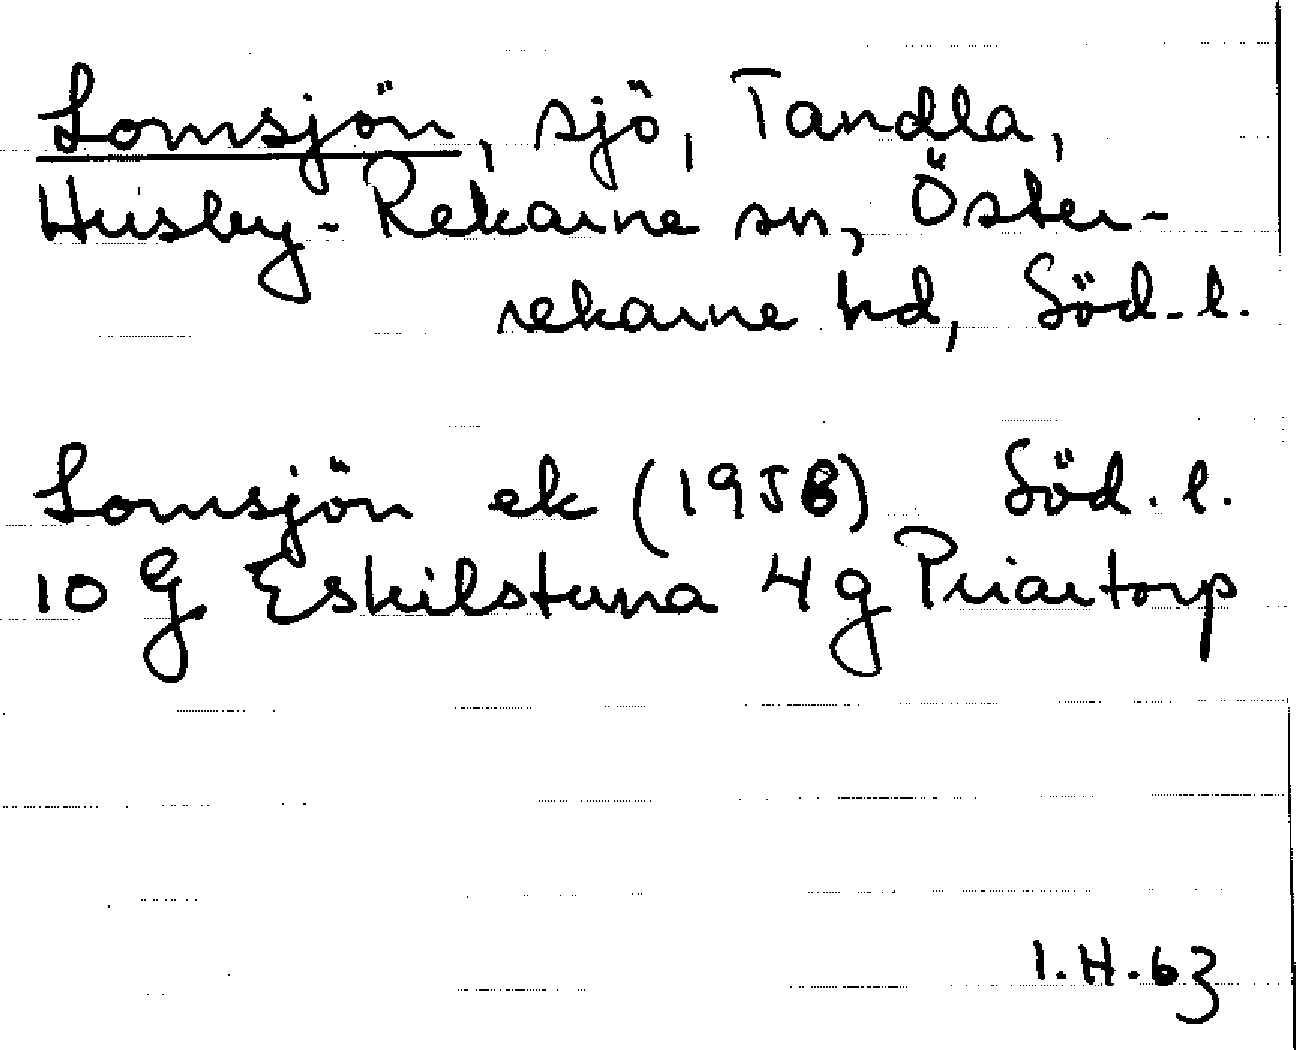 Lomsjön, sjö, Tandla,
Husby-Rekarne sn, Öster-
rekarne hd, Söd. l.
Lomsjön ek (1958) Söd. l.
10 G Eskilstuna 4 g Priartorp
I.H.63